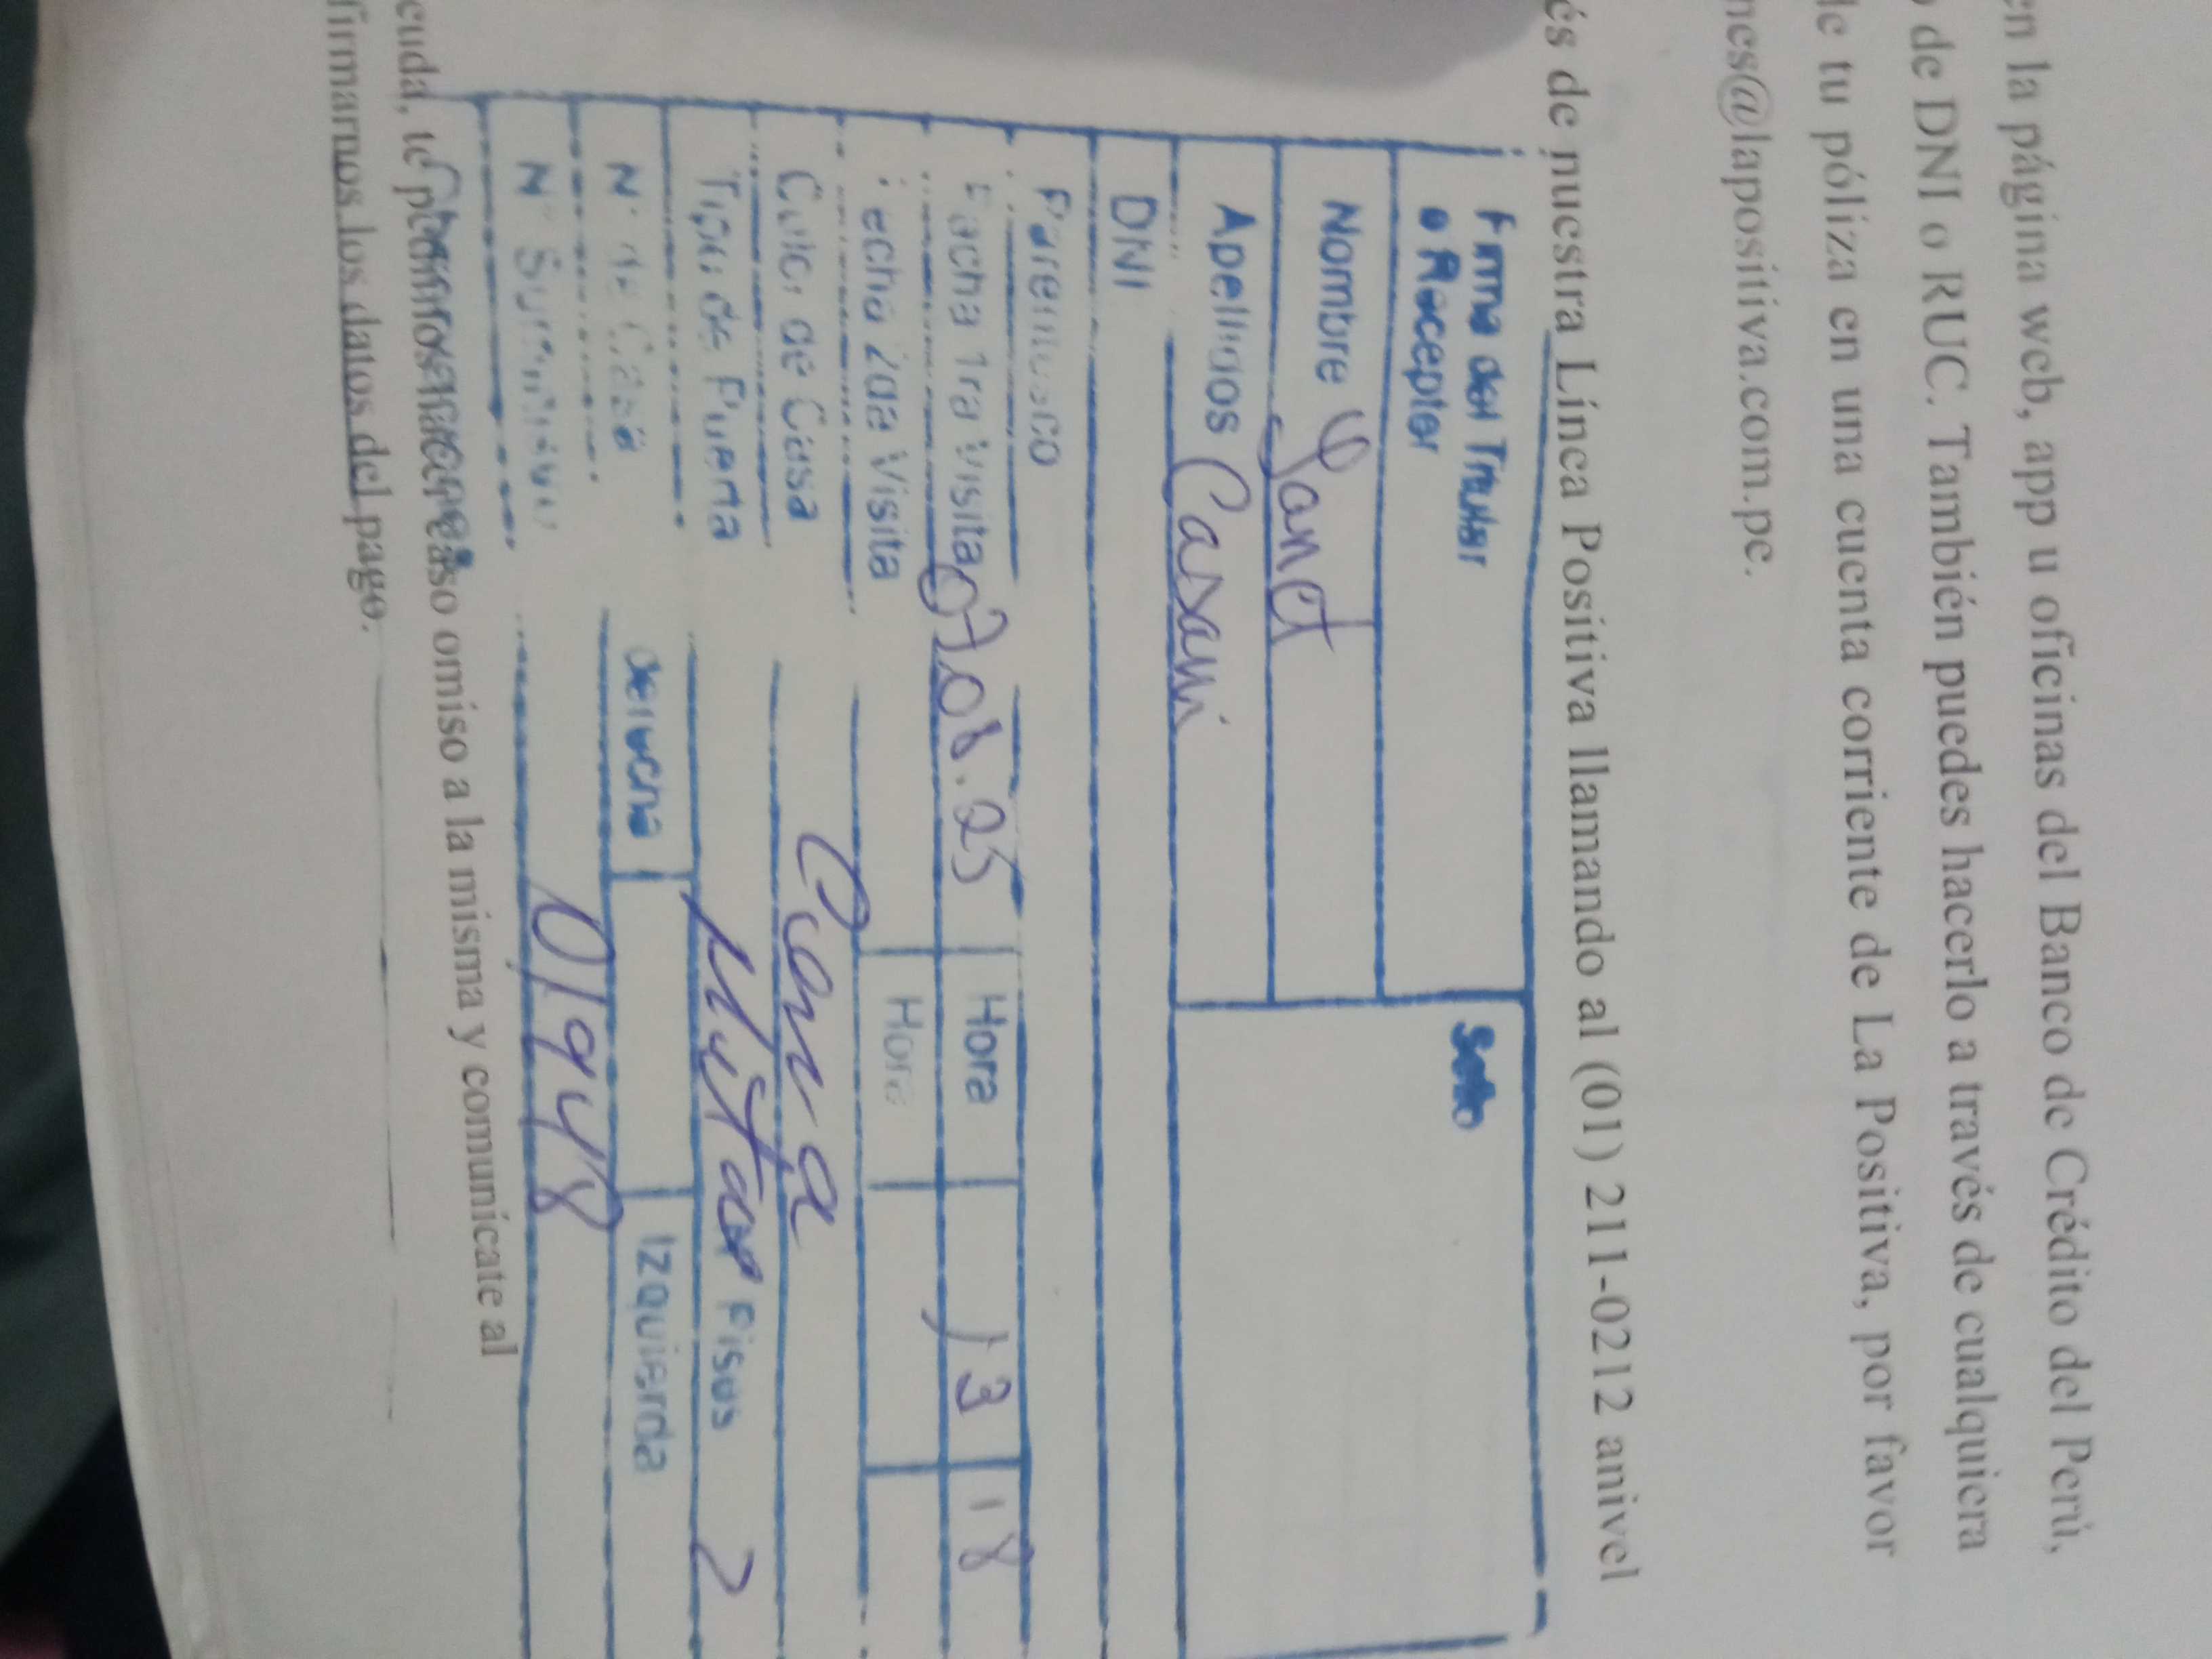 en la página web, app u oficinas del Banco de Crédito del Perú,
de DNI o RUC. También puedes hacerlo a través de cualquiera
de tu póliza en una cuenta corriente de La Positiva, por favor
nes@lapositiva.com.pe.
és de nuestra Línea Positiva llamando al (01) 211-0212 anivel
Firma del Titular Sello
o Receptor
Nombre Yanet
Apellidos Casani
DNI
Parentesco
Fecha 1ra Visita 07.08.25 Hora 13 18
Fecha 2da Visita Hora
Color de Casa
Tipo de Puerta Pisos 2
N° de Casa derecha Izquierda
N° Suministro 01948
euda, te pedimos hacer caso omiso a la misma y comunícate al
firmarnos los datos del pago.